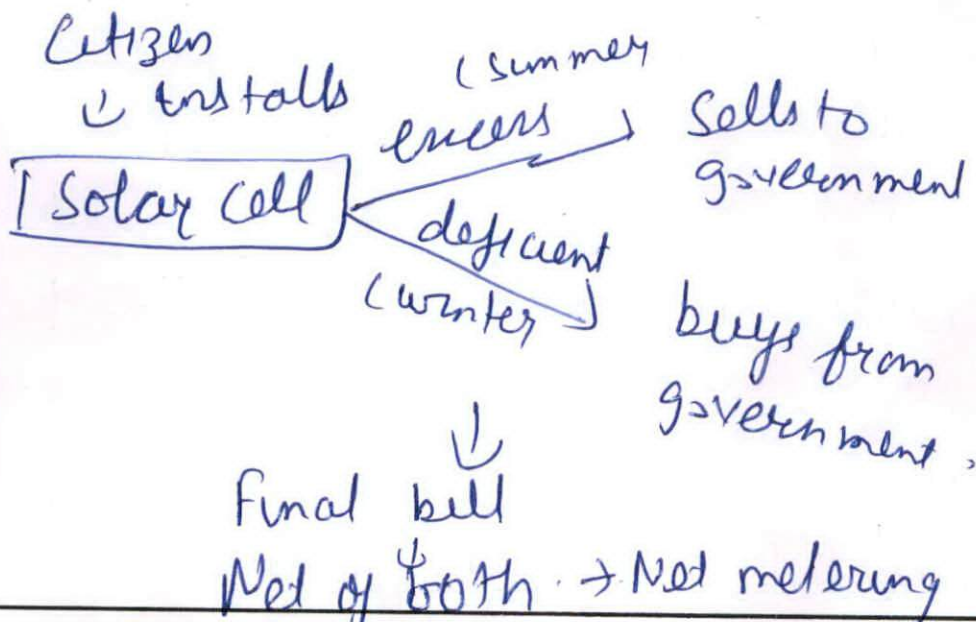 Citizen
↓ installs
Solar cell
excess (summer
Sells to
government
deficient
(winter
buys from
government.
↓
Final bill
↓
Net of both → Net metering